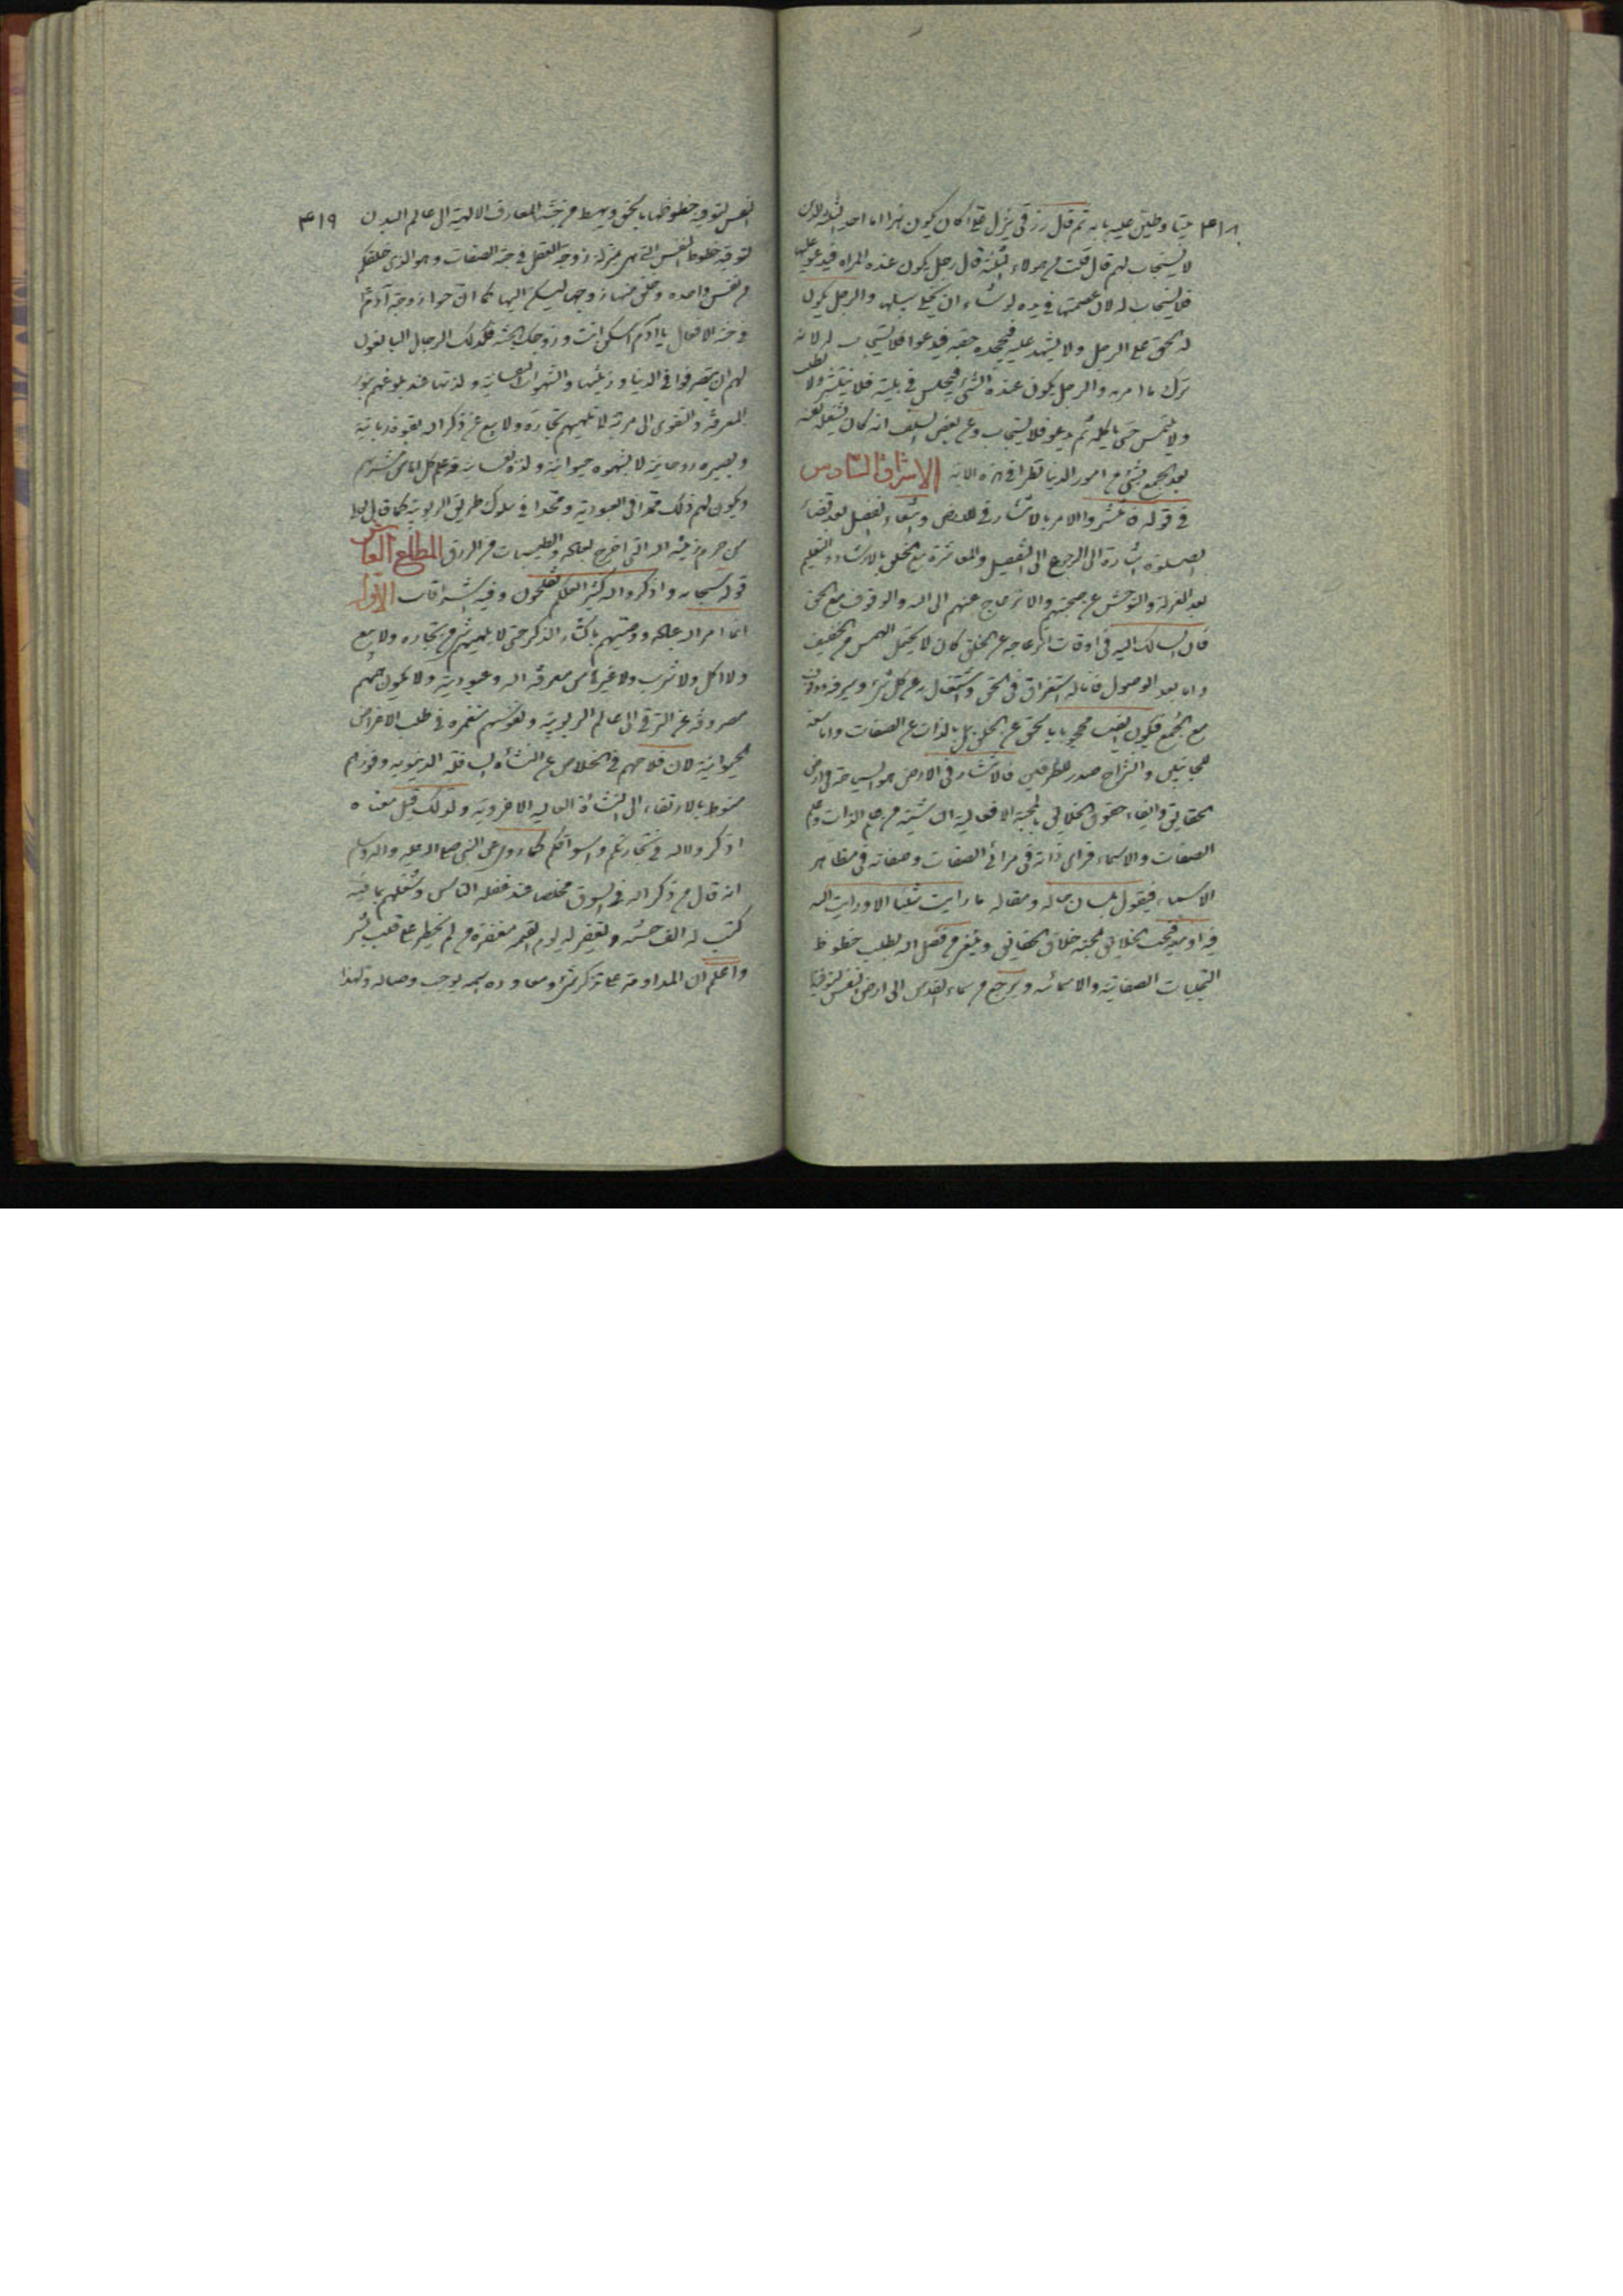 ٤١٨ بيتا وطين عليه بابه ثم قال رزقى ينزل على أكان يكون هذا اما احد الثلثة الذين
لا يستجاب لهم قال قلت من هولاء الثلثة قال رجل يكون عنده المراه فيدعو عليها
فلا يستجاب له لان عصمتها فى يده لو شاء ان يخلى سبيلها والرجل يكون
له الحق على الرجل ولا يشهد عليه فيجحده حقه فيدعوا فلا يستجاب له لانه
ترك ما امر به والرجل يكون عنده الشئ فيجلس فى بيته فلا ينتشر ولا يطلب
ولا يلتمس حتى ياكله ثم يدعو فلا يستجاب وعن بعض السلف انه كان يشغل نفسه
بعد الجمعة بشئ من امور الدنيا نظرا فى هذه الاية الاشراق السادس
فى قوله فانتشروا الامر بالانتشار فى الارض وابتغاء الفضل بعد قضاء
الصلوة اشارة الى الرجوع الى التفصيل والمعاشرة مع الخلق بالارشاد والتعليم
بعد العزلة والتوحش عن صحبتهم والانزعاج عنهم الى الله والوقوف مع الحق
فان السالك اليه فى اوقات انزعاجه عن الخلق كان لا يحتمل الهمس من الخفيف
واما بعد الوصول فاما له استغراق فى الحق واشتغال به عن كل شئ
مع الجمع فيكون ايضا محجوبا بالحق عن الخلق بل بالذات عن الصفات واما سعة
للجانبين وانشراح صدر للطرفين فالانتشار فى الارض هو السياحة فى ارض
الحقايق وايفاء حقوق الخلايق بالمحبة الافعالية الناشئة من علم الذات وعلم
الصفات والاسماء فراى ذاته فى مرائى الصفات وصفاته فى مظاهر
الاسماء فيقول بلسان حاله ومقاله ما رايت شيئا الا ورايت الله
فيه او معه فيحب الخلايق لمحبة خلاق الحقايق ويبتغى من فضل الله بطلب حظوظ
التجليات الصفاتية والاسمائه ويرجع من سماء القدس الى ارض النفس لتوفية
النفس لتوفية حظوظها بالحق ويهبط من جنة المعارف الالهية الى عالم البدن ٤١٩
لتوفية حظوظ النفس التى هى بمنزلة زوجة العقل فى جنة الصفات وهو الذى خلقكم
من نفس واحده وخلق منها زوجها ليسكن اليها كما ان حوا زوجة آدم
فى جنة الافعال يا آدم اسكن انت وزوجك الجنة فكذلك الرجال البالغون
لهم ان يتصرفوا فى الدنيا وزينتها والشهوات النفسانية ولذتها عند بلوغهم بنور
المعرفة والتقوى الى مرتبة لا تلهيهم تجارة ولا بيع عن ذكر الله بقوة ربانية
وبصيره روحانية لا بشهوه حيوانية ولذة نفسانية قد علم كل اناس مشربهم
ويكون لهم ذلك ممدا فى العبودية وممدا فى سلوك طريق الربوبية كما قال
من حرم زينة الله التى اخرج لعباده والطيبات من الرزق المطلع العاشر
قوله سبحانه واذكروا الله كثيرا لعلكم تفلحون وفيه اشراقات الاول
انما امر الله عباده ووصيتهم باكثار الذكر حتى لا يلهيهم شئ من تجاره ولا بيع
ولا اكل ولا شرب ولا غيرها من معرفة الله وعبوديته ولا تكون هممهم
مصروفة عن الترقى الى عالم الربوبية ونفوسهم منغمره فى طلب الاغراض
الحيوانية لان فلاحهم فى الخلاص عن النشأة السافلة الدنيويه وفوزهم
منوط بالارتقاء الى النشأة العالية الاخروية ولذلك قيل معناه
اذكروا الله فى تجارتكم واسواقكم كما روى عن النبى صلى الله عليه واله وسلم
انه قال من ذكر الله فى السوق مخلصا عند غفلة الناس وشغلهم بما فيه
كتب له الف حسنه ويغفر له يوم القيمة مغفرة من لم يخطر على قلب بشر
واعلم ان المداومة على تذكر شئ ومعاودة اسمه يوجب وصاله ولهذا